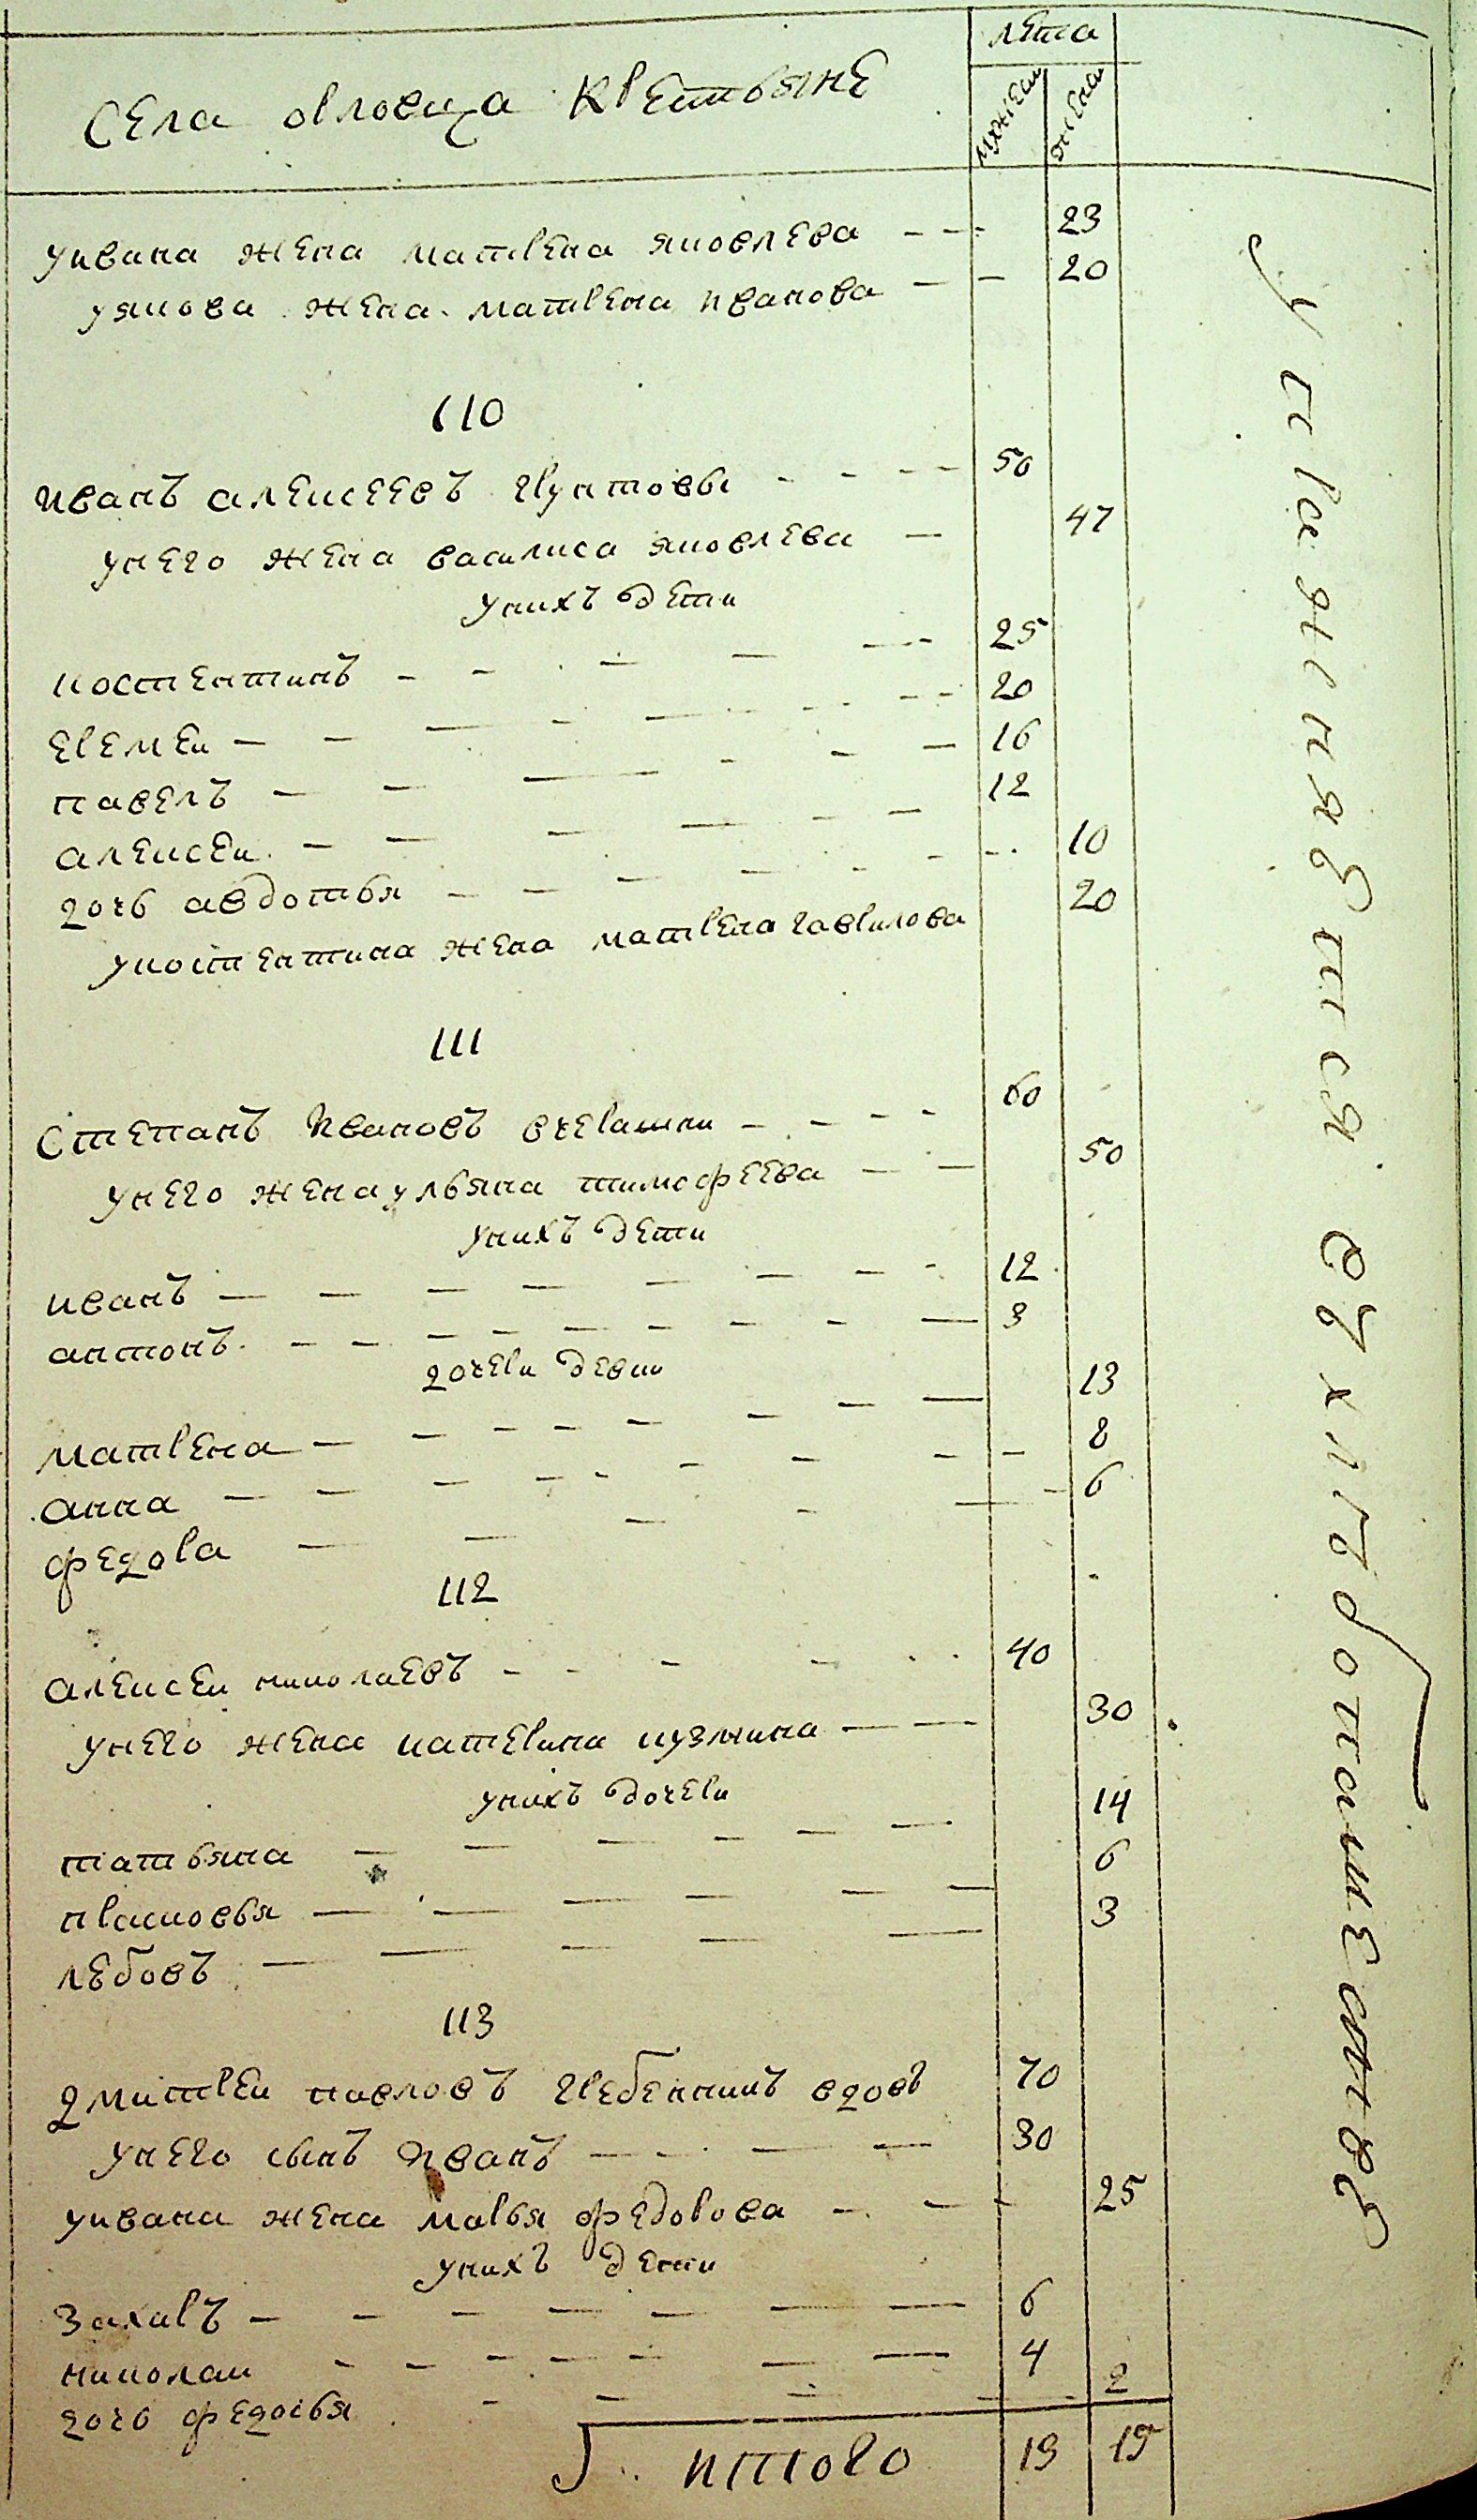 лета
Села орловца крестьяне
мужеск женск
у ивана жена матрена яковлева 23
у якова жена матрена иванова 20
110
иванъ алексеевъ 50
у него жена василиса яковлева 47
у нихъ дети
костентинъ 25
еремеи 20
павелъ 16
алексеи 12
дочь авдотья 10
у костентина жена матрена гаврилова 20
111
степанъ ивановъ 60
у него жена ульяна тимофеева 50
у нихъ дети
иванъ 12
антонъ 3
дочери девки
матрена 13
анна 8
федора 6
112
алексеи николаевъ 40
у него жена катерина кузмина 30
у нихъ дочери
татьяна 14
прасковья 6
лебовъ 3
113
дмитреи павловъ гребенникъ вдовъ 70
у него сынъ иванъ 30
у ивана жена марья федорова 25
у нихъ дети
захаръ 6
николаи 4
дочь федосья 2
итого 13 15
упражняется въ хлебопашестве